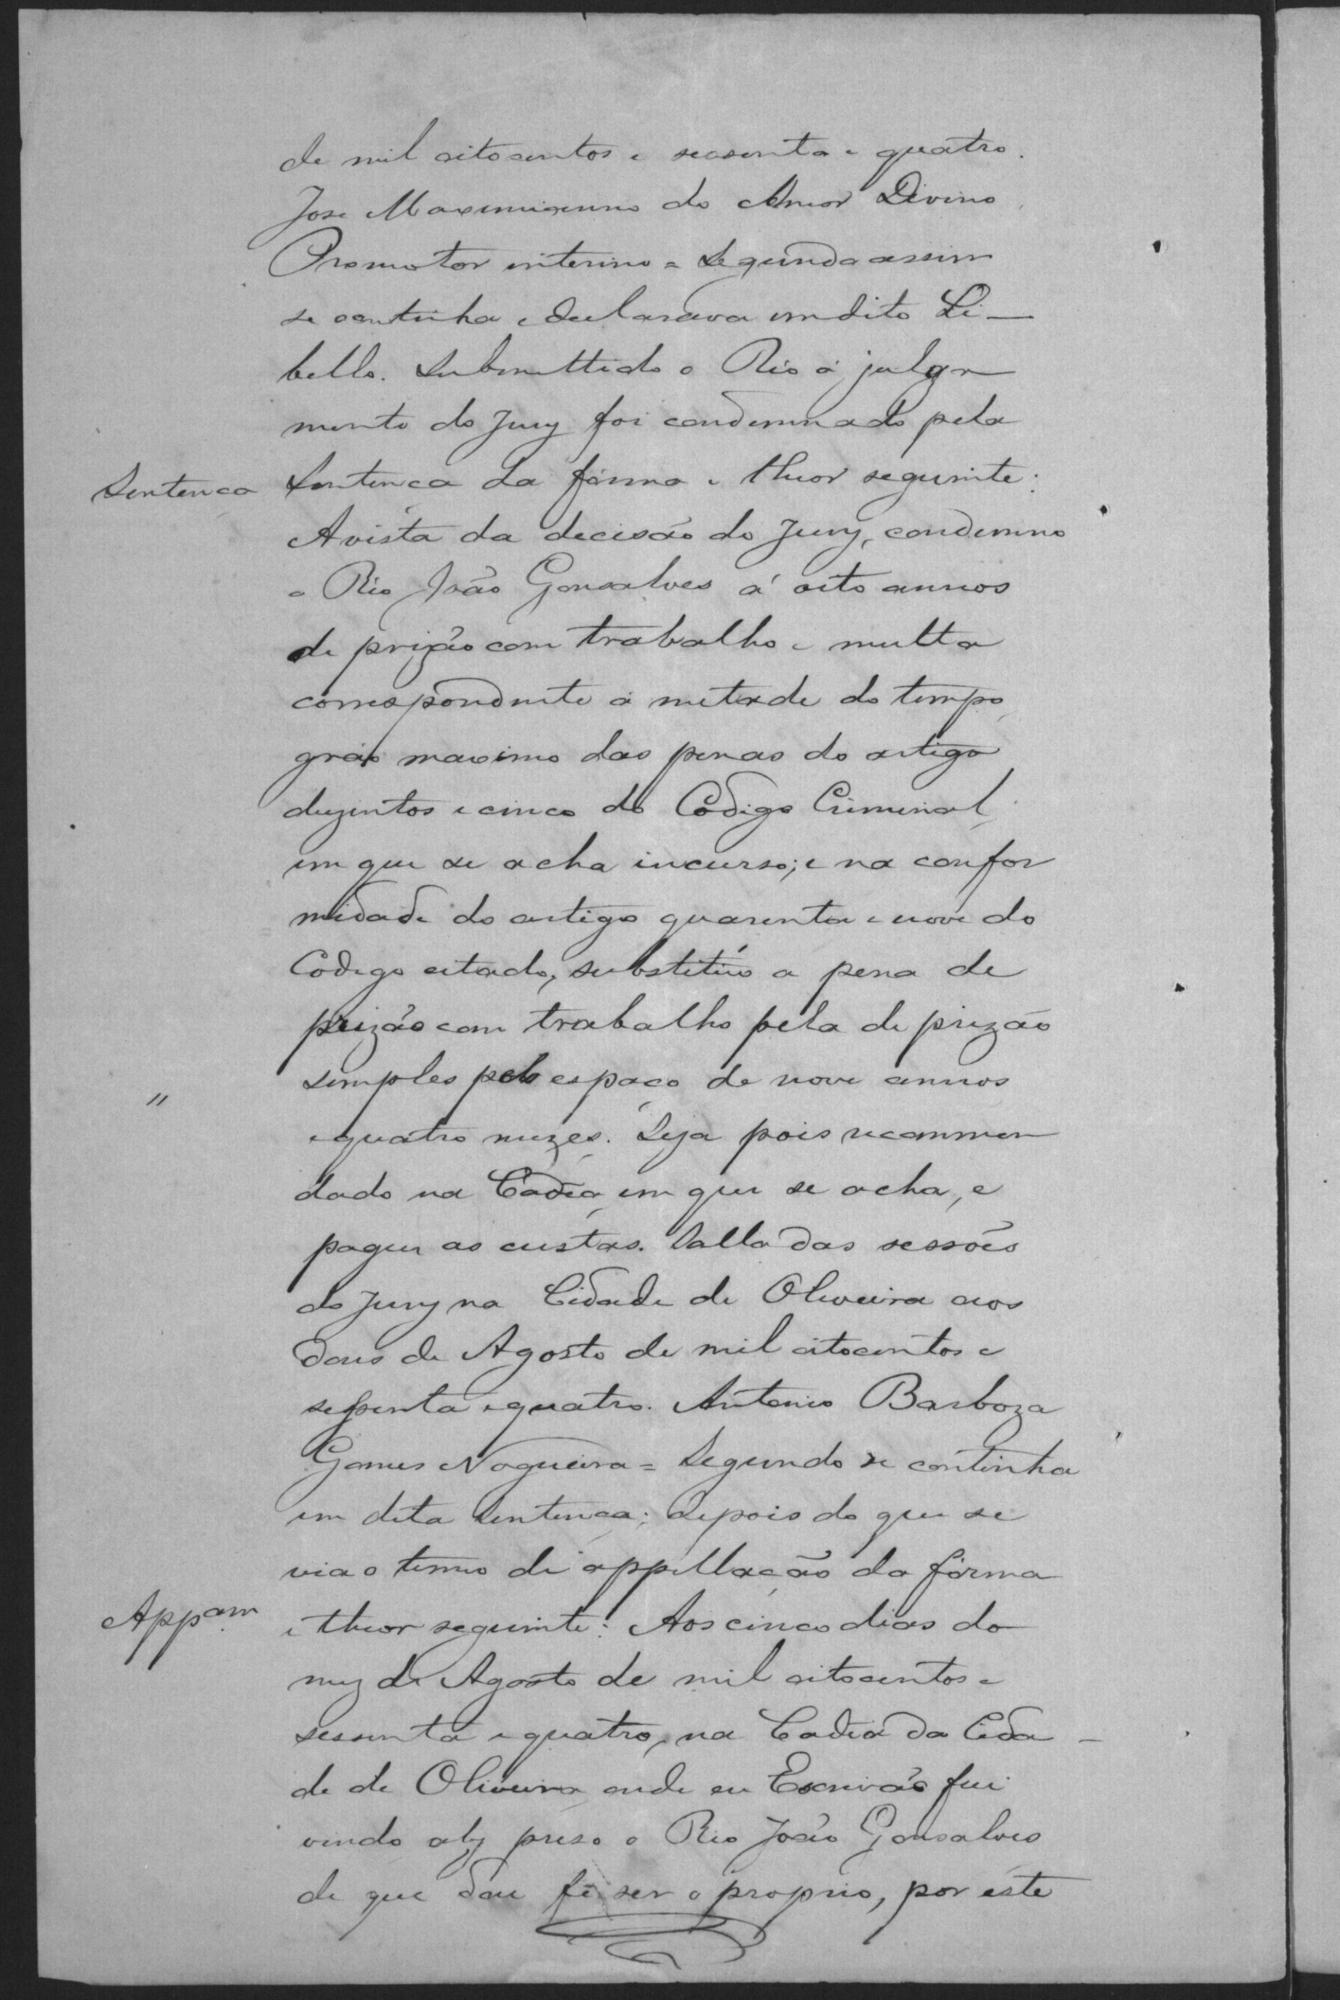 de mil oitocentos e secenta e quatro.
Jose Maximiano do Amor Divino
Promotor interino = Segundo assim
se continha e declarava em dito Li-
bello. Submettido o Réo á julga
mento do Jury foi condemnado pela
Sentença Sentença da fórma e theor seguinte:
Avista da decisão do Jury, condemno
o Réo João Gonsalves á oito annos
de prizão com trabalho e multa
correspondente á metade do tempo,
gráo maximo das penas do artigo
duzentos e cinco do Codigo Criminal,
em que se acha incurso; e na confor
midade do artigo quarenta e nove do
Codigo citado, substitúo a pena de
prizão com trabalho pela de prizão
simples pelo espaço de nove annos
" e quatro mezes. Seja pois recommen
dado na Cadêa, em que se acha, e
pague as custas. Salla das sessões
do Jury na Cidade de Oliveira aos
dous de Agosto de mil oitocentos e
sessenta e quatro. Antonio Barboza
Gomes Nogueira = Segundo se continha
em dita Sentença; depois do que se
via o termo de appellação da fórma
Appam e theor seguinte: Aos cinco dias do
mez de Agosto de mil oitocentos e
sessenta e quatro, na Cadêa da Cida-
de de Oliveira onde eu Escrivão fui
vindo ahy preso o Réo João Gonsalves
de que dou fé ser o proprio, por este